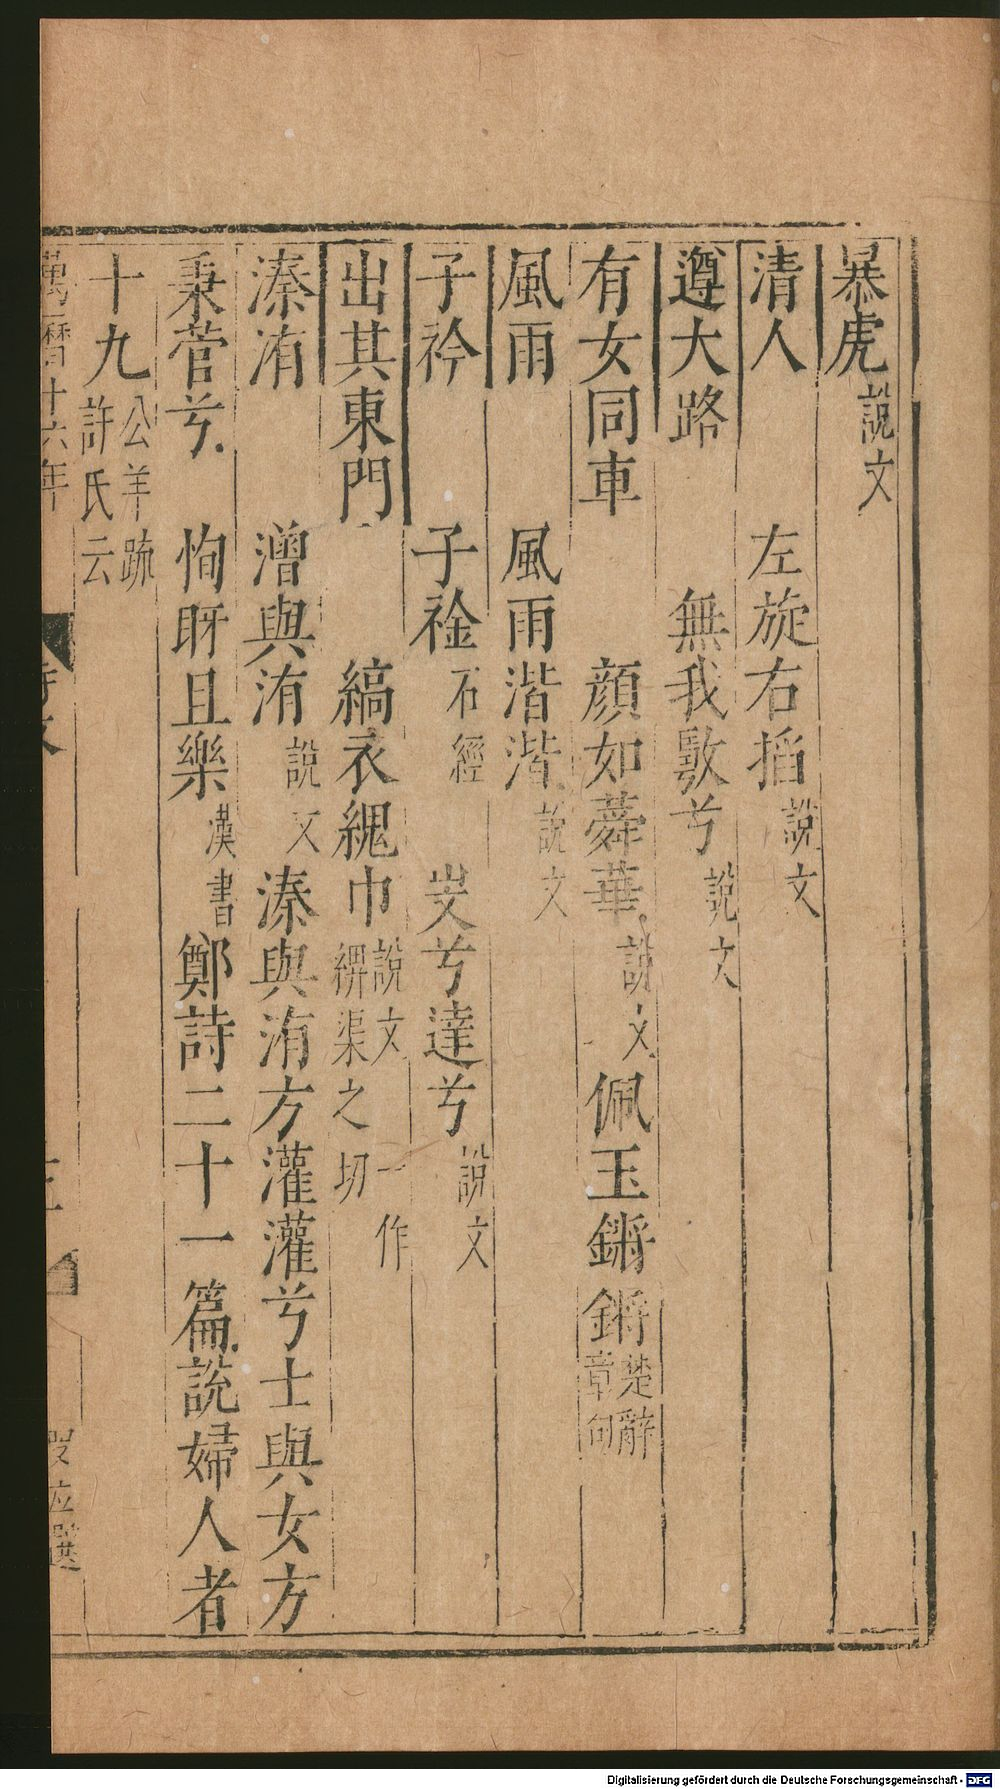 暴虎說文
清人 左旋右搯說文
遵大路 無我𢿥兮說文
有女同車 顏如蕣華說文 佩玉鏘鏘楚辭章句
風雨 風雨湝湝說文
子衿 子䘳石經 㞺兮達兮說文
出其東門 縞衣䋿巾說文一作綥渠之切
溱洧 潧與洧說文 溱與洧方灌灌兮士與女方
秉菅兮恂盱且樂漢書 鄭詩二十一篇說婦人者
十九公羊疏許氏云
萬曆十六年
Digitalisierung gefördert durch die Deutsche Forschungsgemeinschaft - DFG